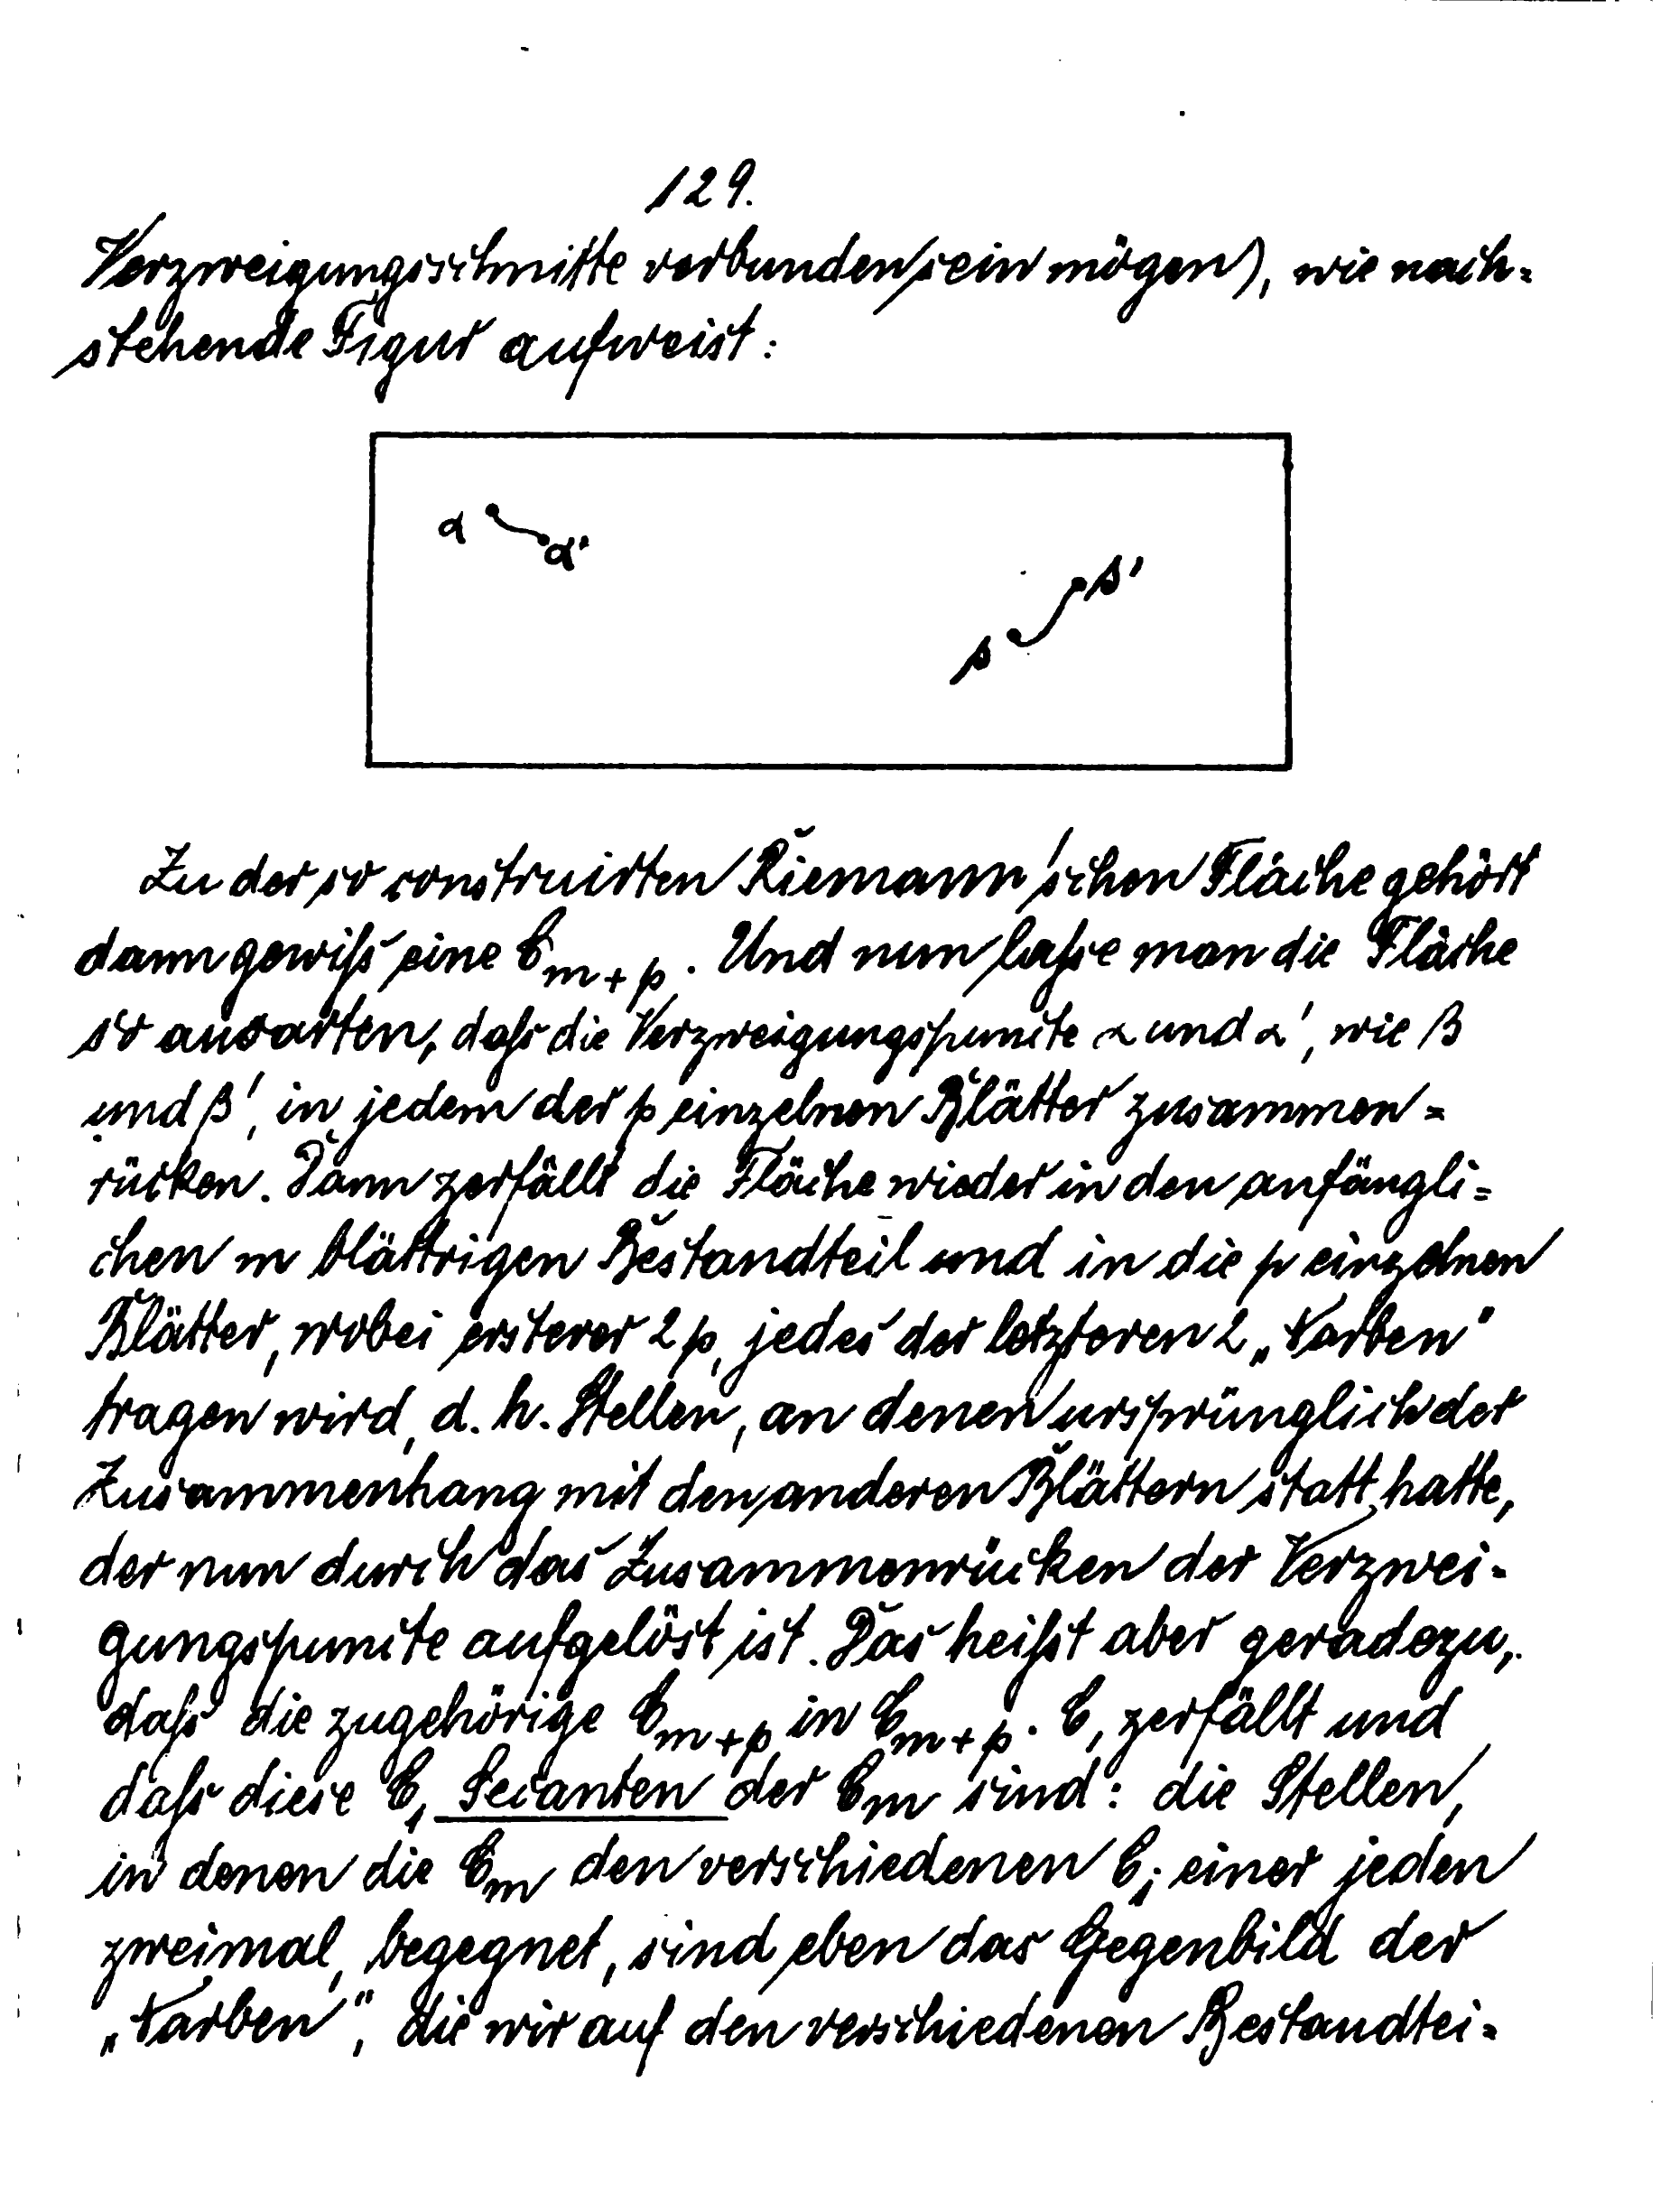 129.
Verzweigungsschnitte verbunden sein mögen), wie nach-
stehende Figur aufweist:
α
α'
β'
β
Zu der so construirten Riemann'schen Fläche gehört
dann gewiſs eine C_{m+p}. Und nun laſse man die Fläche
so ausarten, daſs die Verzweigungspuncte α und α', wie β
und β', in jedem der p einzelnen Blätter zusammen-
rücken. Dann zerfällt die Fläche wieder in den anfängli-
chen m blättrigen Bestandteil und in die p einzelnen
Blätter, wobei ersterer 2p, jedes der letzteren 2 „Narben"
tragen wird, d. h. Stellen, an denen ursprünglich der
Zusammenhang mit den anderen Blättern statt hatte,
der nun durch das Zusammenrücken der Verzwei-
gungspuncte aufgelöst ist. Das heiſst aber geradezu,
daſs die zugehörige C_{m+p} in C_{m+p}. C_1 zerfällt und
daſs diese C_1 Secanten der C_m sind: die Stellen,
in denen die C_m den verschiedenen C_1 einer jeden
zweimal, begegnet, sind eben das Gegenbild der
„Narben", die wir auf den verschiedenen Bestandtei-